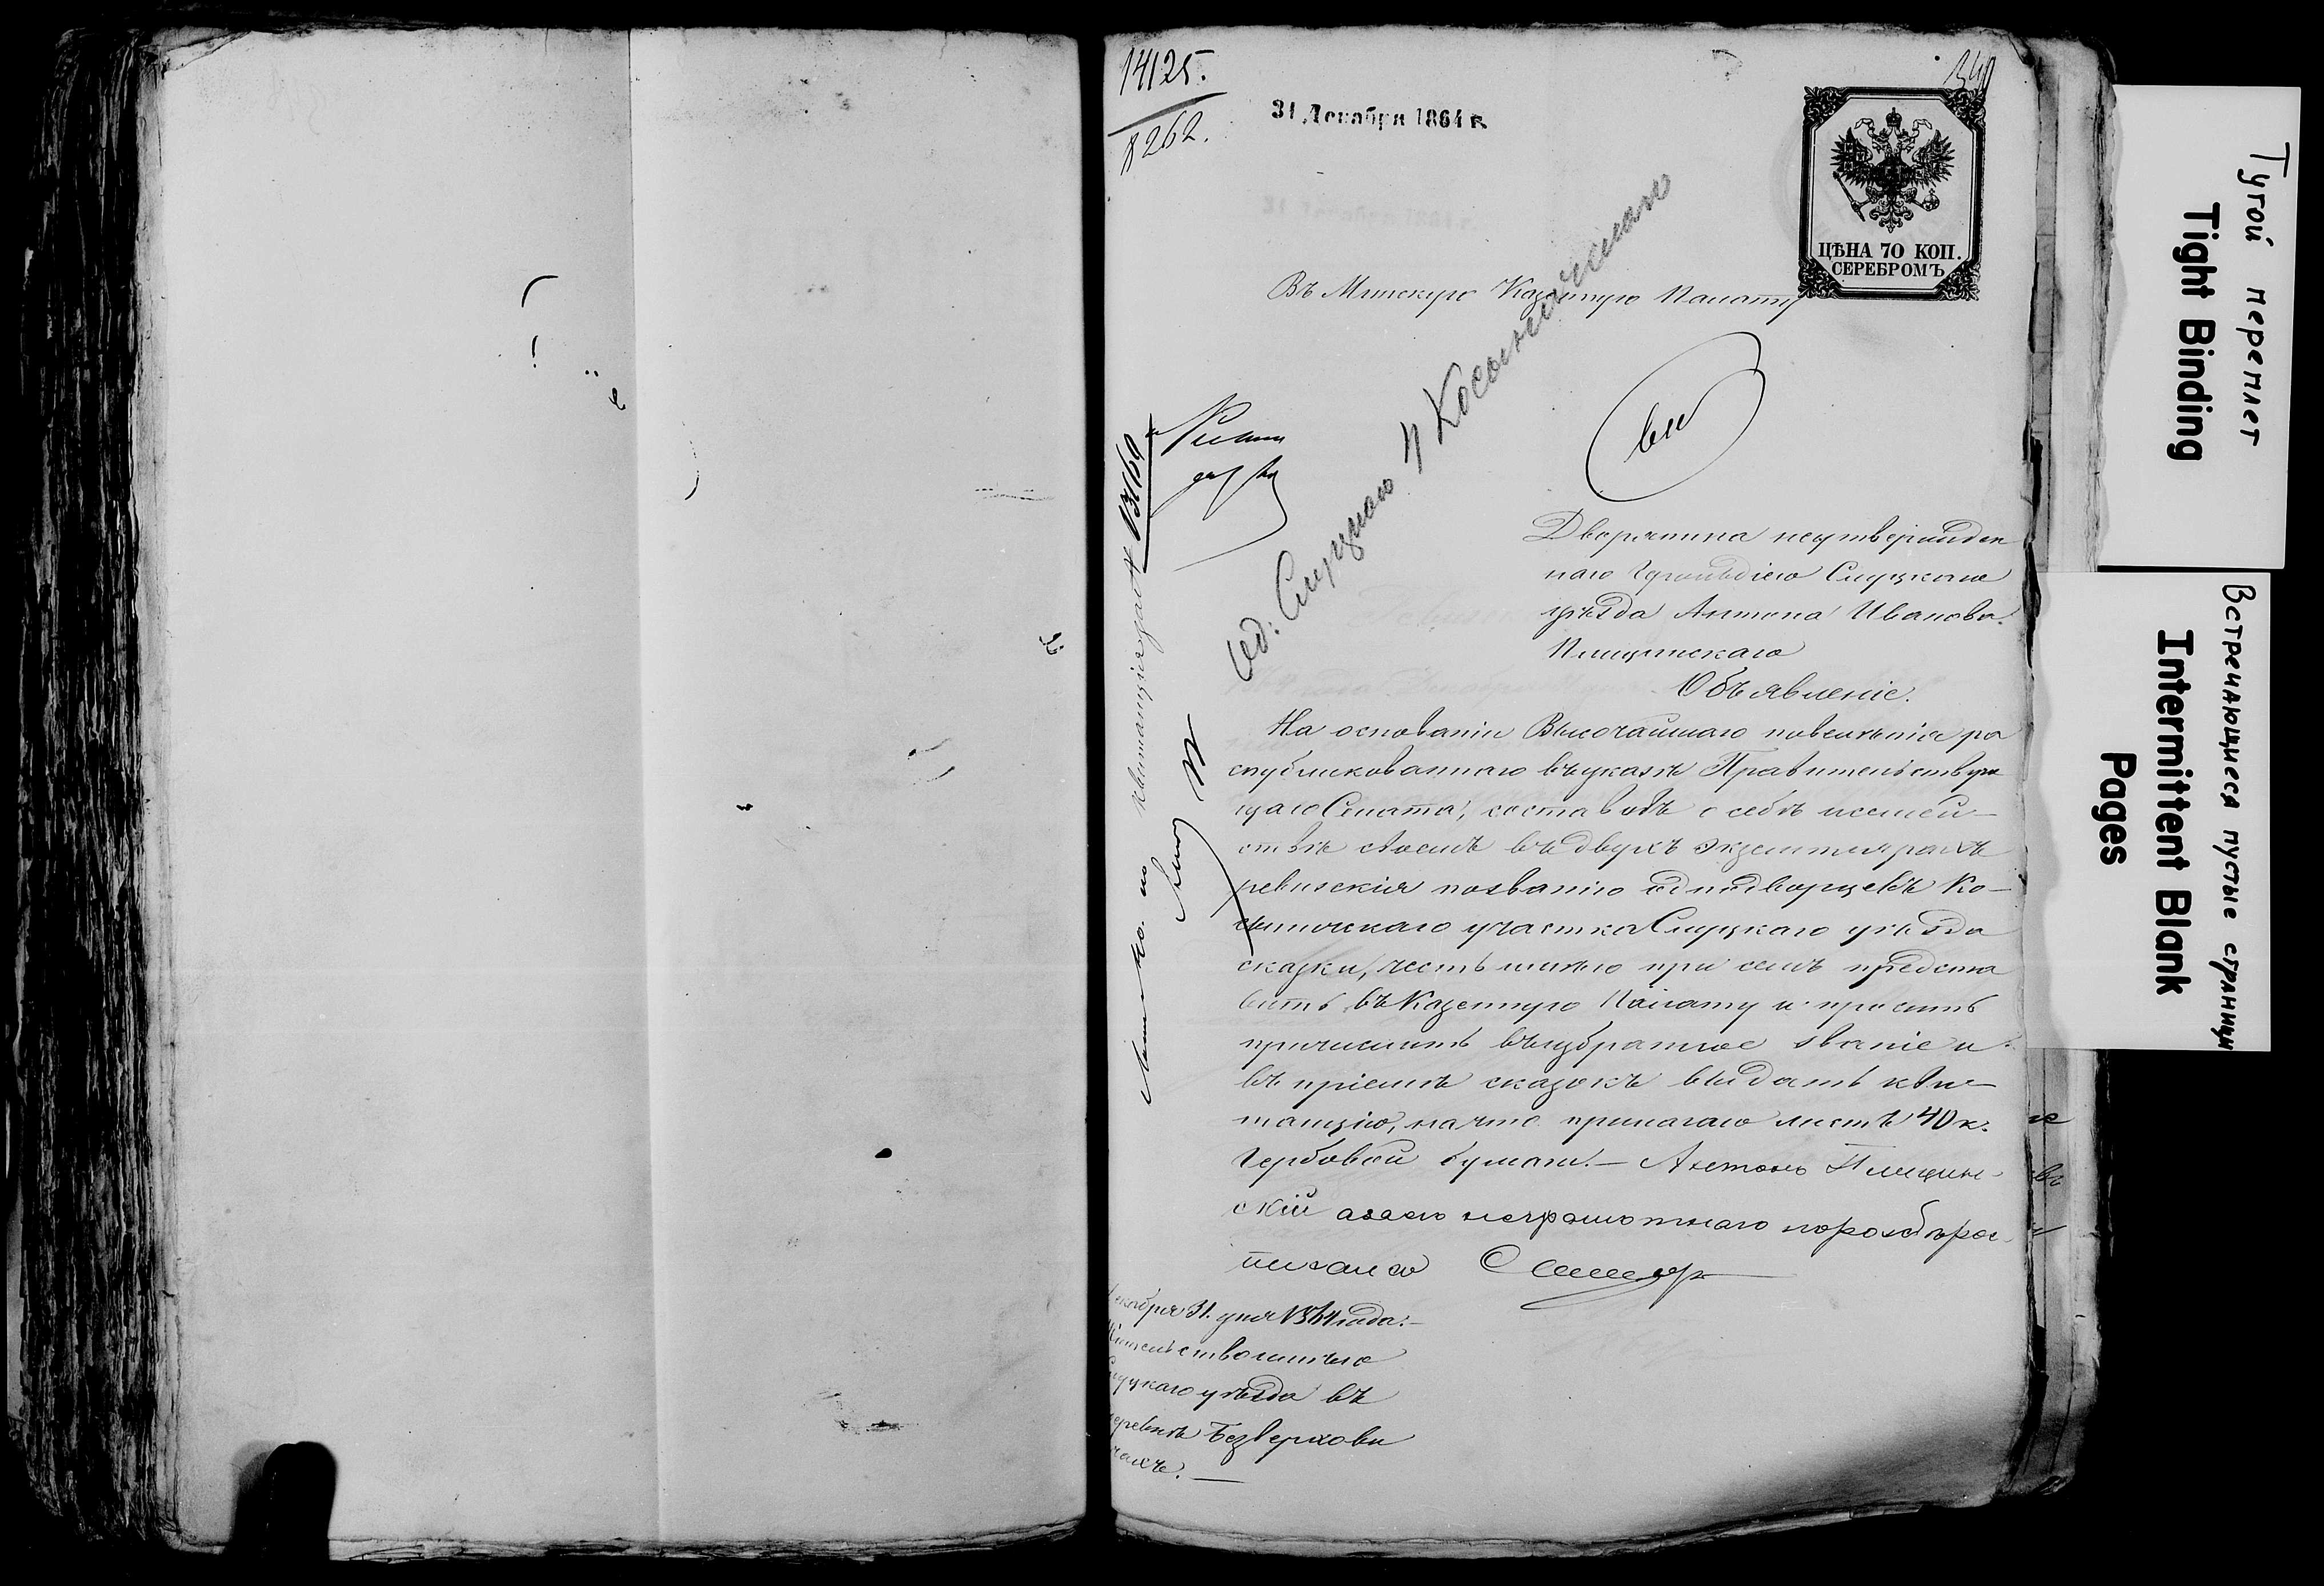 14125.
8262.
31 Декабря 1864 г.
340
ЦѢНА 70 КОП.
СЕРЕБРОМЪ
Въ Минскую Казенную Палату
Дворянина неутвержден
наго Герольдіею Слуцкаго
уѣзда Антона Иванова
Плищинскаго
Объявленіе.
На основаніи Высочайшаго повелѣнія ра
спубликованнаго въ указѣ Правительствую
щаго Сената, составивъ о себѣ и семей-
ствѣ своемъ въ двухъ экземплярахъ
ревизскія по званію однодворцевъ Ко-
участка Слуцкаго уѣзда
сказки, честь имѣю при семъ предста
вить въ Казенную Палату и просить
причислить въ избранное званіе и
въ пріемѣ сказокъ выдать кви-
танцію, на что прилагаю листъ 40 к.
Гербовой бумаги. — Антонъ Плищин-
скій а за его неграмотнаго по прозбѣ рос
писался
Декабря 31. дня 1864 года. —
Жительство имѣю
Слуцкаго уѣзда въ
деревнѣ Безверхови
чахъ. —
Тугой переплет
Tight Binding
Встречающиеся пустые страницы
Intermittent Blank
Pages